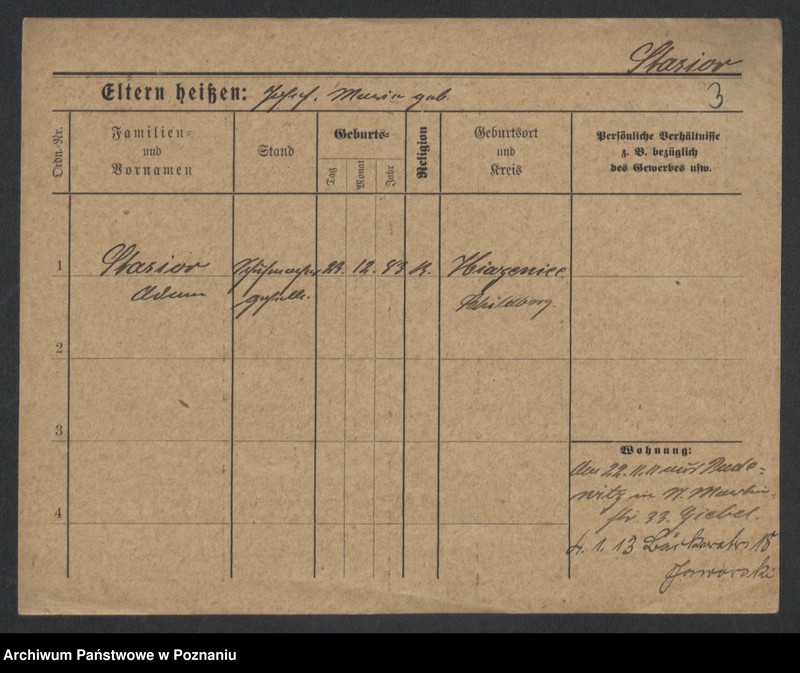 Stasior
Eltern heißen: Josef. Maria geb.
3
Ordn.-Nr.
Familien-
und
Vornamen
Stand
Geburts-
Tag
Monat
Jahr
Religion
Geburtsort
und
Kreis
Persönliche Verhältnisse
z. B. bezüglich
des Gewerbes usw.
1
Stasior
Adam
Schuhmacher
geselle.
23. 12. 93 k.
Schildberg.
2
3
4
Wohnung:
Am 22.11.11 aus Dude-
witz in St. Martin-
str 33. Giebel.
4. 1. 13 Bäckerstr. 18
Jaworski
Archiwum Państwowe w Poznaniu